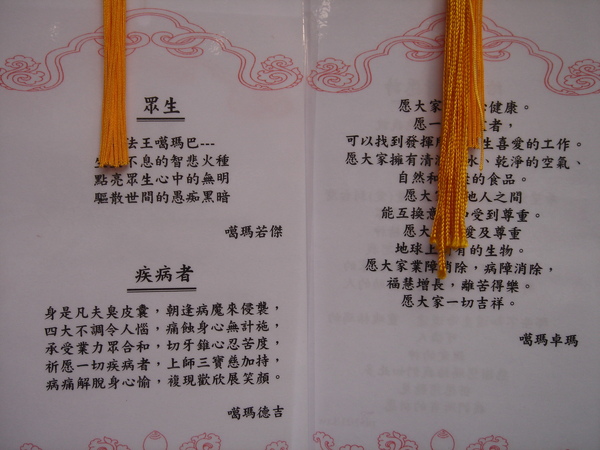 眾生
法王噶瑪巴---
不息的智悲火種
點亮眾生心中的無明
驅散世間的愚痴黑暗
噶瑪若傑
疾病者
身是凡夫臭皮囊，朝逢病魔來侵襲，
四大不調令人惱，痛蝕身心無計施，
承受業力眾合和，切牙錐心忍苦度，
祈愿一切疾病者，上師三寶慈加持，
病痛解脫身心愉，複現歡欣展笑顏。
噶瑪德吉
愿大家 健康。
愿一 者，
可以找到發揮 生喜愛的工作。
愿大家擁有清 水、乾淨的空氣、
自然和 的食品。
愿大 他人之間
能互換意 受到尊重。
愿大 愛及尊重
地球上 有的生物。
愿大家業障消除，病障消除，
福慧增長，離苦得樂。
愿大家一切吉祥。
噶瑪卓瑪